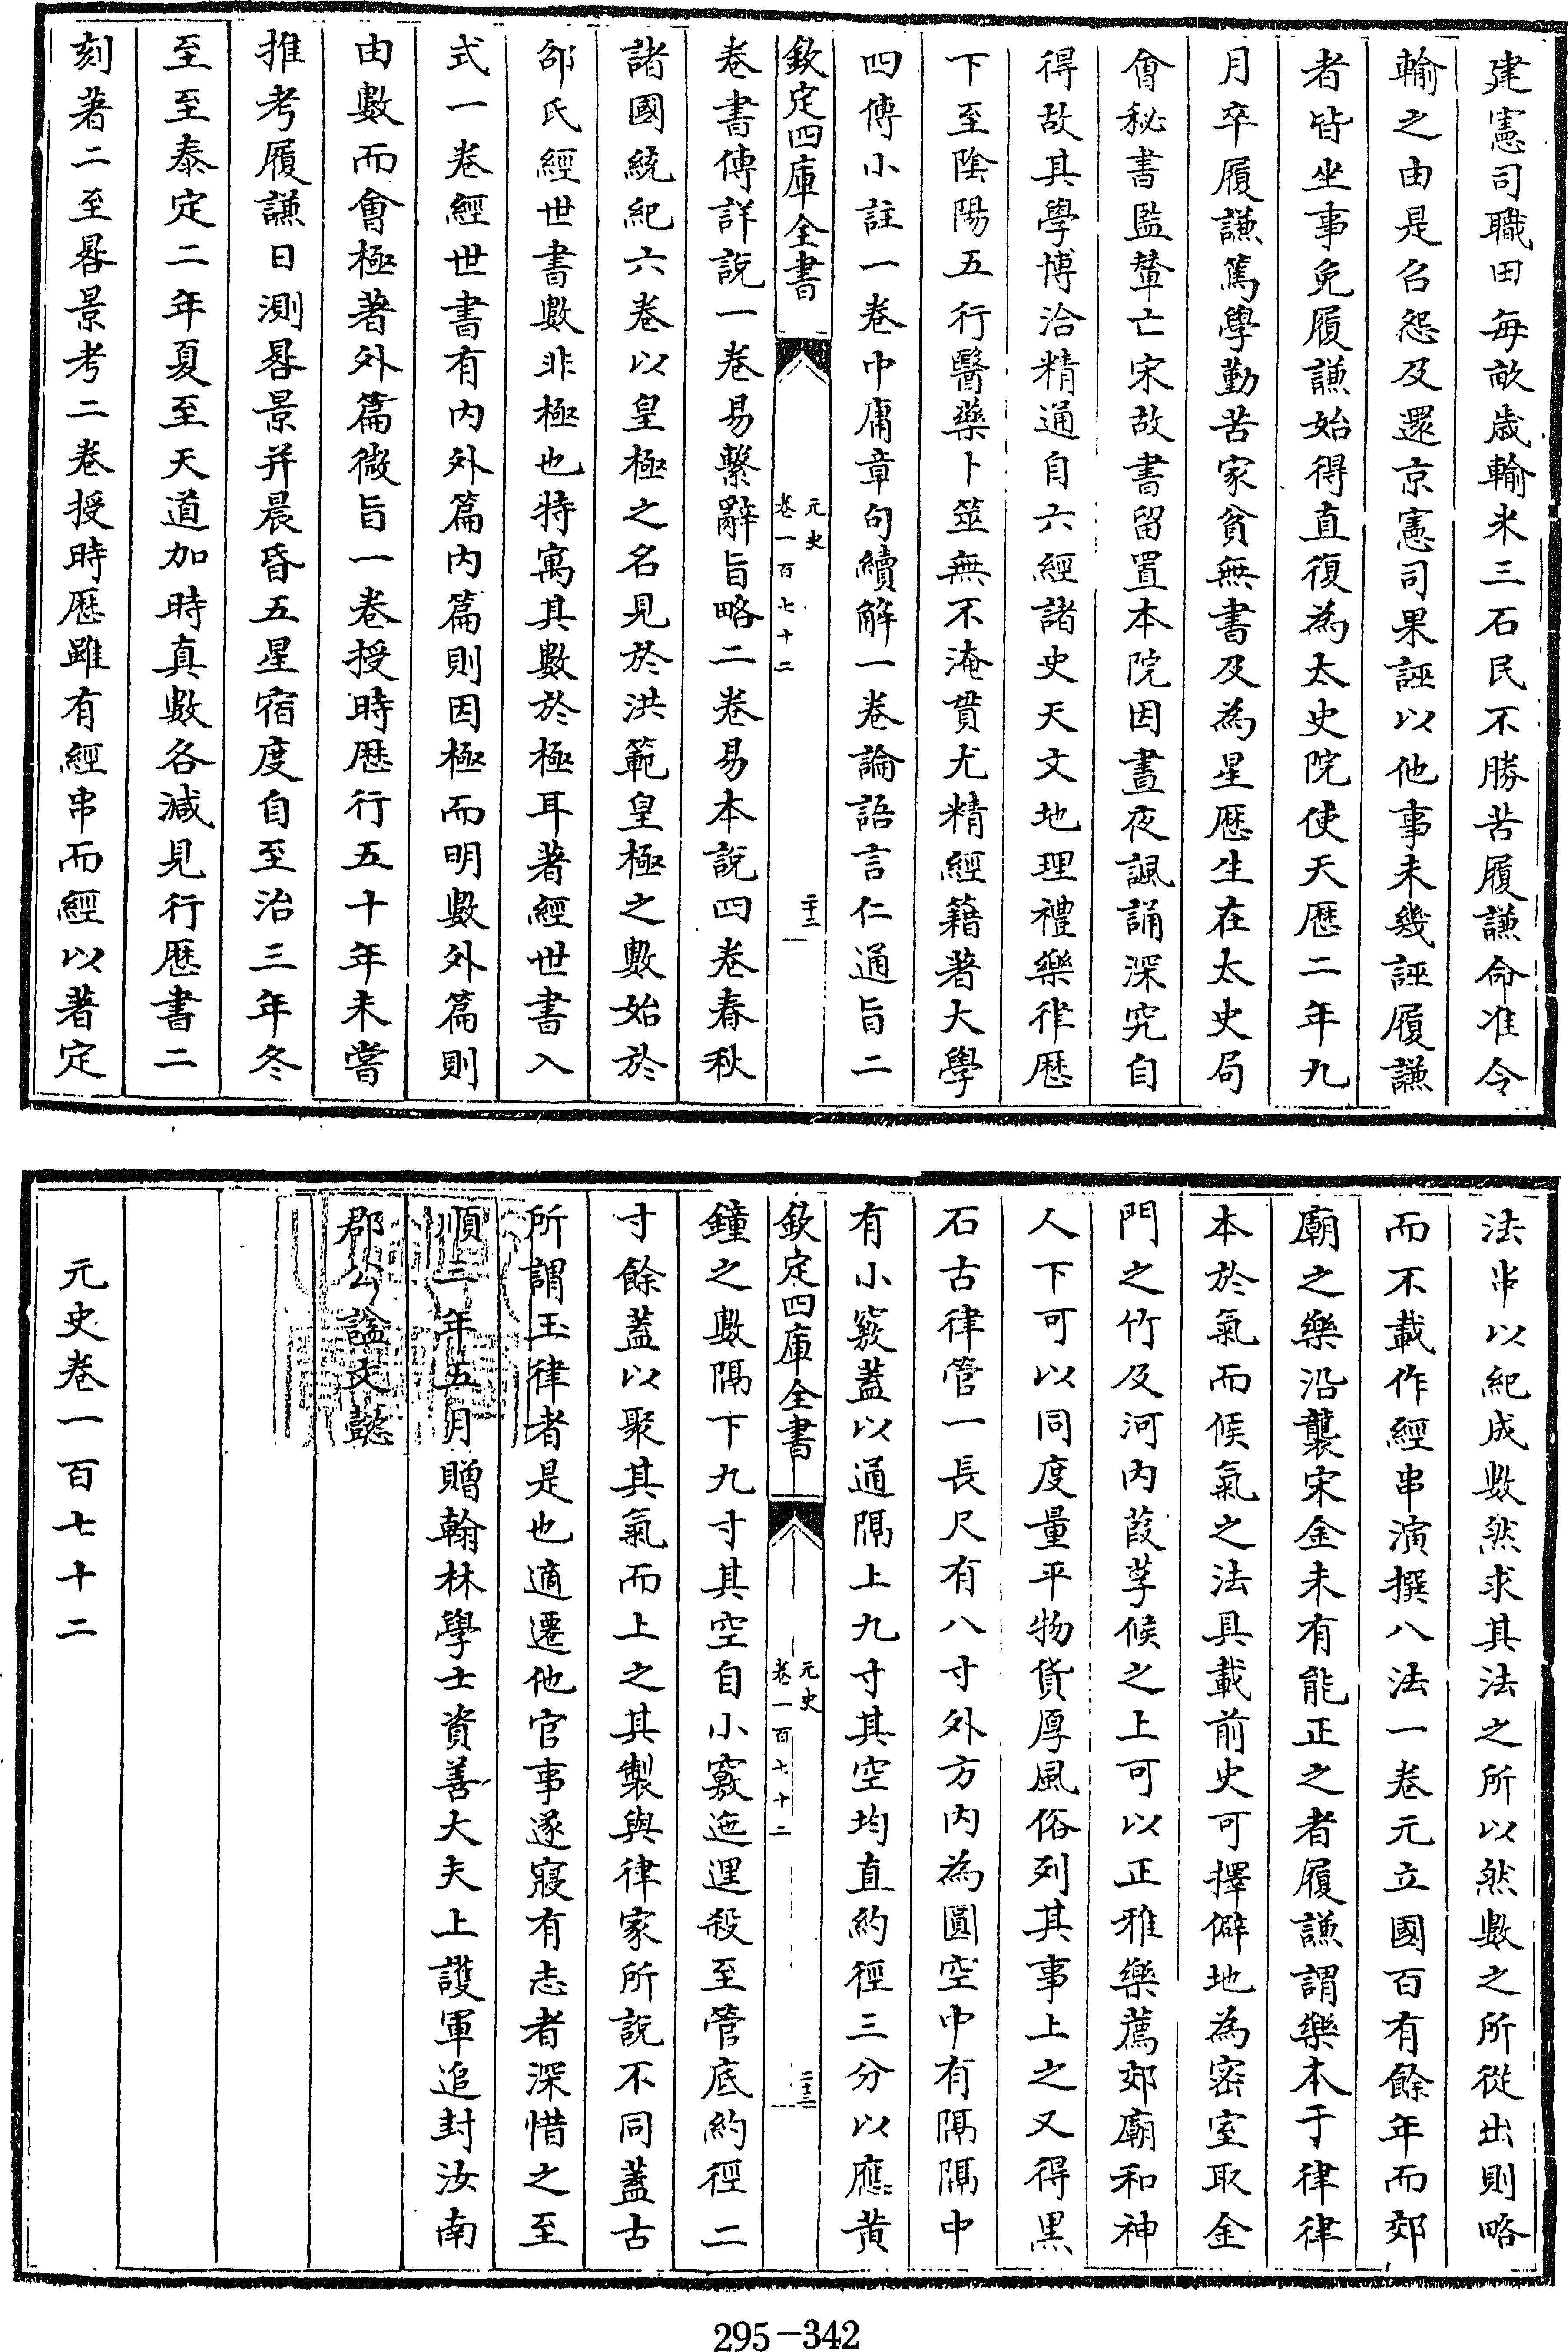 建憲司職田每畝歲輸米三石民不勝苦履謙命准令
輸之由是召怨及還京憲司果誣以他事未幾誣履謙
者皆坐事免履謙始得直復為太史院使天歷二年九
月卒履謙篤學勤苦家貧無書及為星歷生在太史局
會秘書監輦亡宋故書留置本院因晝夜諷誦深究自
得故其學博洽精通自六經諸史天文地理禮樂律歷
下至陰陽五行醫藥卜筮無不淹貫尤精經籍著大學
四傳小註一卷中庸章句續解一卷論語言仁通旨二
欽定四庫全書
元史
卷一百七十二
二十二
卷書傳詳說一卷易繫辭旨略二卷易本說四卷春秋
諸國統紀六卷以皇極之名見於洪範皇極之數始於
邵氏經世書數非極也特寓其數於極耳著經世書入
式一卷經世書有內外篇內篇則因極而明數外篇則
由數而會極著外篇微旨一卷授時歷行五十年未嘗
推考履謙日測晷景并晨昏五星宿度自至治三年冬
至至泰定二年夏至天道加時真數各減見行歷書二
刻著二至晷景考二卷授時歷雖有經串而經以著定
法串以紀成數然求其法之所以然數之所從出則略
而不載作經串演撰八法一卷元立國百有餘年而郊
廟之樂沿襲宋金未有能正之者履謙謂樂本于律律
本於氣而候氣之法具載前史可擇僻地為密室取金
門之竹及河內葭莩候之上可以正雅樂薦郊廟和神
人下可以同度量平物貨厚風俗列其事上之又得黑
石古律管一長尺有八寸外方內為圓空中有隔隔中
有小竅蓋以通隔上九寸其空均直約徑三分以應黃
欽定四庫全書
元史
卷一百七十二
二十三
鐘之數隔下九寸其空自小竅迤邐殺至管底約徑二
寸餘蓋以聚其氣而上之其製與律家所說不同蓋古
所謂玉律者是也適遷他官事遂寢有志者深惜之至
順三年五月贈翰林學士資善大夫上護軍追封汝南
郡公諡文懿
元史卷一百七十二
295-342